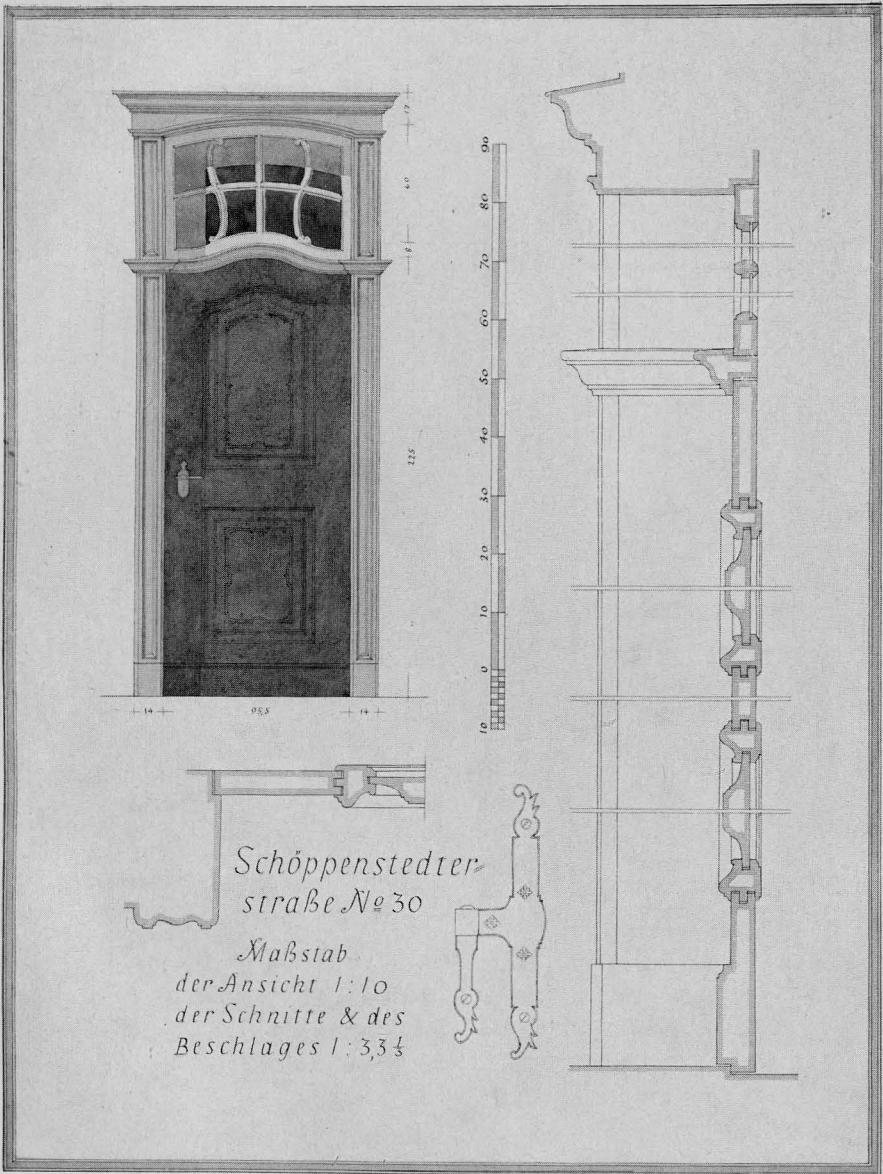 17
60
8
225
14
95,5
14
90
80
70
60
50
40
30
20
10
0
10
Schöppenstedter=
straße No 30
Maßstab
der Ansicht 1:10
der Schnitte & des
Beschlages 1:3,3⅓